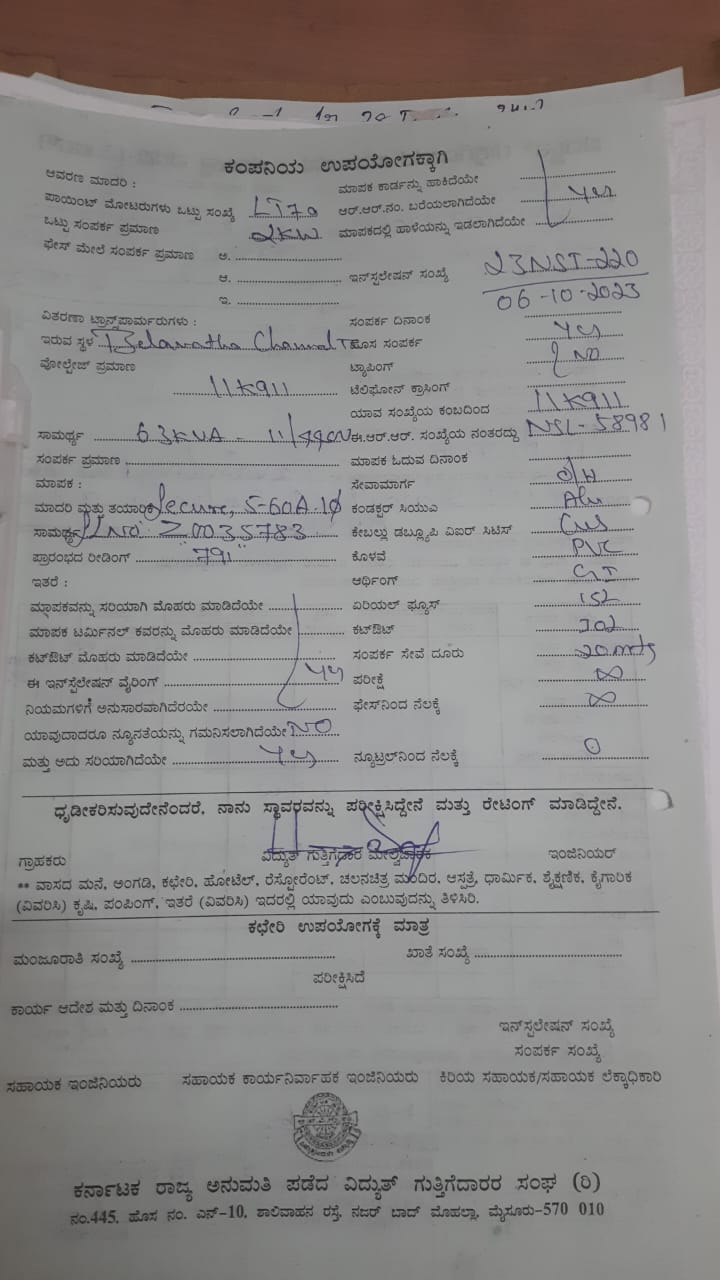 ಕಂಪನಿಯ ಉಪಯೋಗಕ್ಕಾಗಿ
ಆವರಣ ಮಾದರಿ : ಮಾಪಕ ಕಾರ್ಡನ್ನು ಹಾಕಿದೆಯೇ
ಪಾಯಿಂಟ್ ಮೋಟರುಗಳು ಒಟ್ಟು ಸಂಖ್ಯೆ LT70 ಆರ್.ಆರ್.ನಂ. ಬರೆಯಲಾಗಿದೆಯೇ Yes
ಒಟ್ಟು ಸಂಪರ್ಕ ಪ್ರಮಾಣ 2KW ಮಾಪಕದಲ್ಲಿ ಹಾಳೆಯನ್ನು ಇಡಲಾಗಿದೆಯೇ
ಫೇಸ್ ಮೇಲೆ ಸಂಪರ್ಕ ಪ್ರಮಾಣ ಅ.
ಆ. ಇನ್‌ಸ್ಪಲೇಷನ್ ಸಂಖ್ಯೆ 23NST-220
ಇ. 06-10-2023
ವಿತರಣಾ ಟ್ರಾನ್ಸ್‌ಪಾರ್ಮರುಗಳು : ಸಂಪರ್ಕ ದಿನಾಂಕ
ಇರುವ ಸ್ಥಳ ಹೊಸ ಸಂಪರ್ಕ Yes
ವೋಲ್ಟೇಜ್ ಪ್ರಮಾಣ ಟ್ಯಾಪಿಂಗ್ NO
11K911 ಟೆಲಿಫೋನ್ ಕ್ರಾಸಿಂಗ್
ಯಾವ ಸಂಖ್ಯೆಯ ಕಂಬದಿಂದ 11K911
ಸಾಮರ್ಥ್ಯ 63KVA - ಈ.ಆರ್.ಆರ್. ಸಂಖ್ಯೆಯ ನಂತರದ್ದು NSL-58981
ಸಂಪರ್ಕ ಪ್ರಮಾಣ ಮಾಪಕ ಓದುವ ದಿನಾಂಕ
ಮಾಪಕ : ಸೇವಾಮಾರ್ಗ O/H
ಮಾದರಿ ಮತ್ತು ತಯಾರಿಕೆ Secure, 5-60A.1ϕ ಕಂಡಕ್ಟರ್ ಸಿಯುಎ Alu
ಸಾಮರ್ಥ್ಯ SLNO 20035783 ಕೇಬಲ್ಲು ಡಬ್ಲ್ಯೂಪಿ ವಿಐರ್ ಸಿಟಿಸ್
ಪ್ರಾರಂಭದ ರೀಡಿಂಗ್ 791 ಕೊಳವೆ PVC
ಇತರೆ : ಆರ್ಥಿಂಗ್ GI
ಮ್ಯಾಪಕವನ್ನು ಸರಿಯಾಗಿ ಮೊಹರು ಮಾಡಿದೆಯೇ ಏರಿಯಲ್ ಫ್ಯೂಸ್
ಮಾಪಕ ಟರ್ಮಿನಲ್ ಕವರನ್ನು ಮೊಹರು ಮಾಡಿದೆಯೇ ಕಟ್‌ಔಟ್
ಕಟ್‌ಔಟ್ ಮೊಹರು ಮಾಡಿದೆಯೇ ಸಂಪರ್ಕ ಸೇವೆ ದೂರು 20mts
ಈ ಇನ್‌ಸ್ಪೆಲೇಷನ್ ವೈರಿಂಗ್ Yes ಪರೀಕ್ಷೆ ∞
ನಿಯಮಗಳಿಗೆ ಅನುಸಾರವಾಗಿದೆರಯೇ ಫೇಸ್‌ನಿಂದ ನೆಲಕ್ಕೆ ∞
ಯಾವುದಾದರೂ ನ್ಯೂನತೆಯನ್ನು ಗಮನಿಸಲಾಗಿದೆಯೇ NO
ಮತ್ತು ಅದು ಸರಿಯಾಗಿದೆಯೇ Yes ನ್ಯೂಟ್ರಲ್‌ನಿಂದ ನೆಲಕ್ಕೆ 0
ಧೃಡೀಕರಿಸುವುದೇನೆಂದರೆ, ನಾನು ಸ್ಥಾವರವನ್ನು ಪರೀಕ್ಷಿಸಿದ್ದೇನೆ ಮತ್ತು ರೇಟಿಂಗ್ ಮಾಡಿದ್ದೇನೆ.
ಗ್ರಾಹಕರು ವಿದ್ಯುತ್ ಗುತ್ತಿಗೆದಾರ ಮೇಲ್ವಿಚಾರಕ ಇಂಜಿನಿಯರ್
** ವಾಸದ ಮನೆ, ಅಂಗಡಿ, ಕಛೇರಿ, ಹೋಟೆಲ್, ರೆಸ್ಟೋರೆಂಟ್, ಚಲನಚಿತ್ರ ಮಂದಿರ, ಆಸ್ಪತ್ರೆ, ಧಾರ್ಮಿಕ, ಶೈಕ್ಷಣಿಕ, ಕೈಗಾರಿಕ
(ವಿವರಿಸಿ) ಕೃಷಿ, ಪಂಪಿಂಗ್, ಇತರೆ (ವಿವರಿಸಿ) ಇದರಲ್ಲಿ ಯಾವುದು ಎಂಬುವುದನ್ನು ತಿಳಿಸಿರಿ.
ಕಛೇರಿ ಉಪಯೋಗಕ್ಕೆ ಮಾತ್ರ
ಮಂಜೂರಾತಿ ಸಂಖ್ಯೆ ಖಾತೆ ಸಂಖ್ಯೆ
ಪರೀಕ್ಷಿಸಿದೆ
ಕಾರ್ಯ ಆದೇಶ ಮತ್ತು ದಿನಾಂಕ
ಇನ್‌ಸ್ಪಲೇಷನ್ ಸಂಖ್ಯೆ
ಸಂಪರ್ಕ ಸಂಖ್ಯೆ
ಸಹಾಯಕ ಇಂಜಿನಿಯರು ಸಹಾಯಕ ಕಾರ್ಯನಿರ್ವಾಹಕ ಇಂಜಿನಿಯರು ಕಿರಿಯ ಸಹಾಯಕ/ಸಹಾಯಕ ಲೆಕ್ಕಾಧಿಕಾರಿ
ಕರ್ನಾಟಕ ರಾಜ್ಯ ಅನುಮತಿ ಪಡೆದ ವಿದ್ಯುತ್ ಗುತ್ತಿಗೆದಾರರ ಸಂಘ (ರಿ)
ನಂ.445, ಹೊಸ ನಂ. ಎನ್-10, ಶಾಲಿವಾಹನ ರಸ್ತೆ, ನಜರ್ ಬಾದ್ ಮೊಹಲ್ಲಾ, ಮೈಸೂರು-570 010